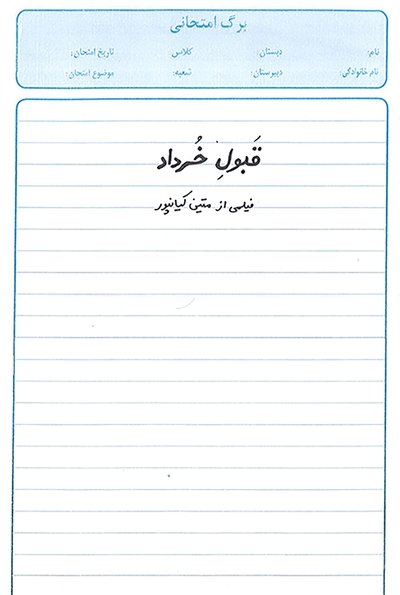 برگ امتحانی
نام: دبستان: کلاس: تاریخ امتحان:
نام خانوادگی: دبیرستان: شعبه: موضوع امتحان:
قَبولِ خُرداد
فیلمی از متین کیانپور